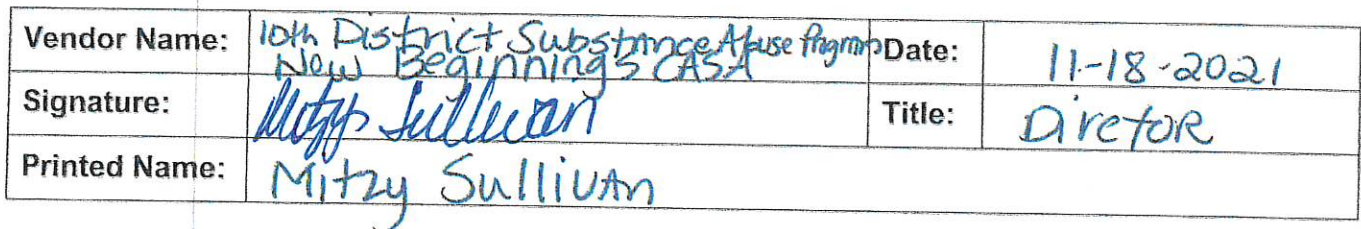 Vendor Name: 10th District Substance Abuse Program Date: 11-18-2021
New Beginnings CASA
Signature: Mitzy Sullivan Title: DiretoR
Printed Name: Mitzy Sullivan